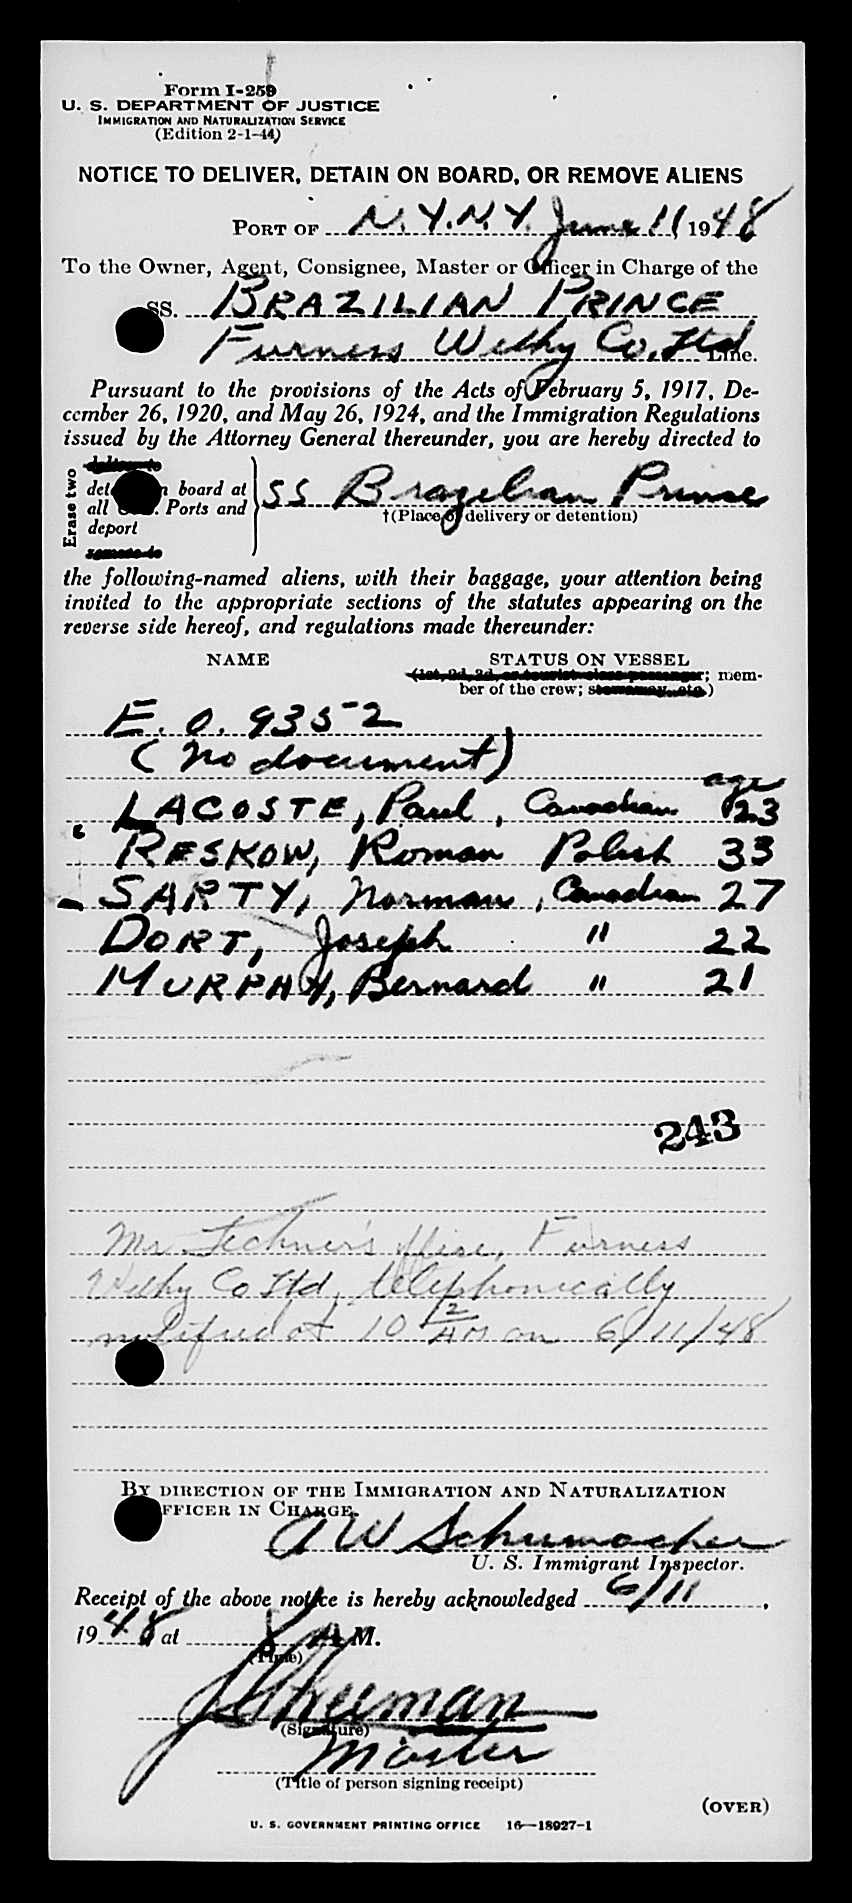 Form I-259
U. S. DEPARTMENT OF JUSTICE
IMMIGRATION AND NATURALIZATION SERVICE
(Edition 2-1-44)
NOTICE TO DELIVER, DETAIN ON BOARD, OR REMOVE ALIENS
PORT OF N.Y.N.Y. June 11, 1948
To the Owner, Agent, Consignee, Master or Officer in Charge of the
SS. BRAZILIAN PRINCE
Furness Withy Co. Ltd Line.
Pursuant to the provisions of the Acts of February 5, 1917, De-
cember 26, 1920, and May 26, 1924, and the Immigration Regulations
issued by the Attorney General thereunder, you are hereby directed to
Erase two
board at
all Ports and
deport
SS Brazilian Prince
†(Place of delivery or detention)
the following-named aliens, with their baggage, your attention being
invited to the appropriate sections of the statutes appearing on the
reverse side hereof, and regulations made thereunder:
NAME STATUS ON VESSEL
(1st, 2d, 3d, or tourist class passenger; mem-
ber of the crew; stowaway, etc.)
E. O. 9352
(No document)
age
LACOSTE, Paul, Canadian 23
RESKOW, Roman Polish 33
SARTY, Norman, Canadian 27
DORT, Joseph " 22
MURPHY, Bernard " 21
243
Mr office, Furness
Withy Co Ltd, telephonically
notified at 10 12 AM on 6/11/48
BY DIRECTION OF THE IMMIGRATION AND NATURALIZATION
OFFICER IN CHARGE.
A W Schumacher
U. S. Immigrant Inspector.
Receipt of the above notice is hereby acknowledged 6/11,
1948 at AM.
(Time)
(Signature)
Master
(Title of person signing receipt)
(OVER)
U. S. GOVERNMENT PRINTING OFFICE 16—18927-1